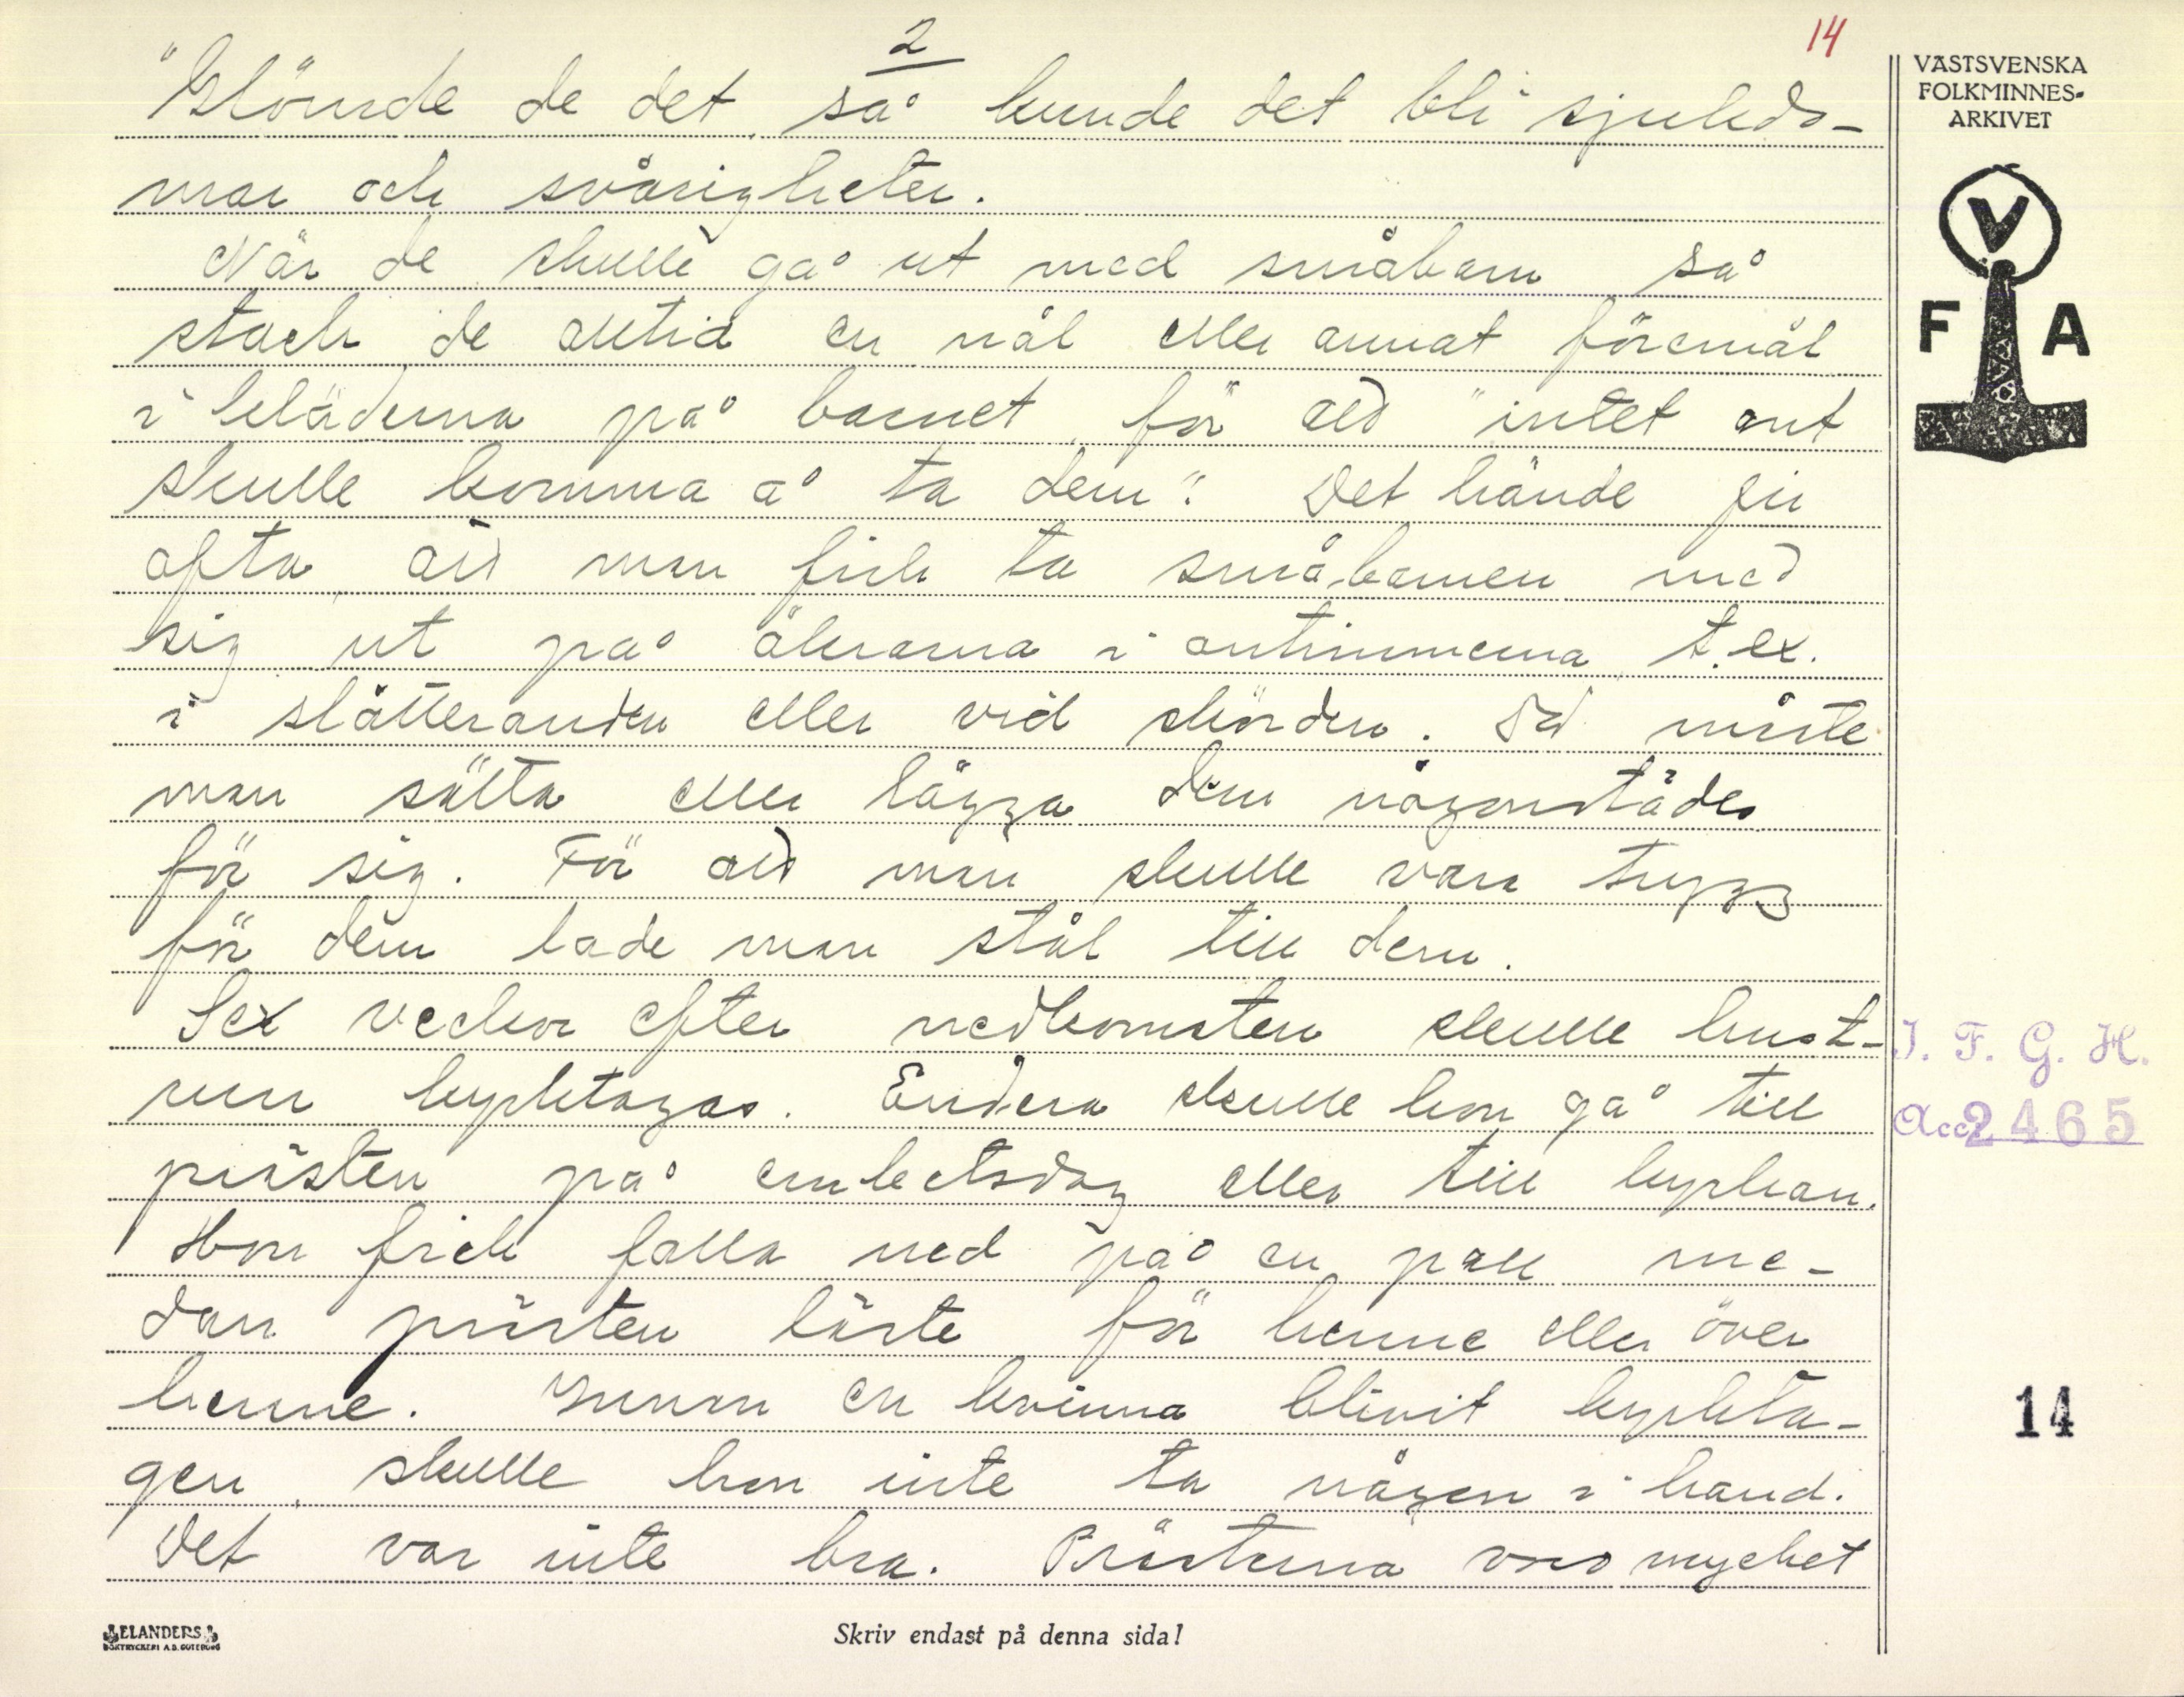 2
14
"Glömde de det, så kunde det bli sjukdo-
mar och svårigheter.
När de skulle gå ut med småbarn så
stack de alltid en nål eller annat föremål
i kläderna på barnet, för att "intet ont
skulle komma å ta dem". Det hände ju
ofta, att man fick ta småbarnen med
sig ut på åkrarna i
t.ex.
i slåtteranden eller vid skörden. Då måste
man sätta eller lägga dem någonstädes
för sig. För att man skulle vara trygg
för dem lade man stål till dem.
Sex veckor efter nedkomsten skulle hust-
run kyrktagas. Endera skulle hon gå till
prästen på embetsdag eller till kyrkan.
Hon fick falla ned på en pall me-
dan prästen läste för henne eller över
henne. Innan en kvinna blivit kyrkta-
gen, skulle hon inte ta någon i hand.
Det var inte bra. Prästerna voro mycket
VÄSTSVENSKA
FOLKMINNES-
ARKIVET
V
F A
I. F. G. H.
Acc. 2465
14
ELANDERS
BOKTRYCKERI A.B. GÖTEBORG
Skriv endast på denna sida!